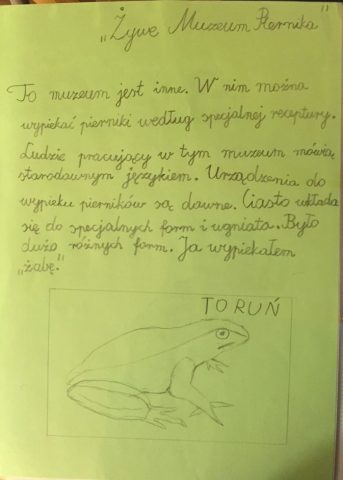 „Żywe Muzeum Piernika"
To muzeum jest inne. W nim można
wypiekać pierniki według specjalnej receptury.
Ludzie pracujący w tym muzeum mówią
starodawnym językiem. Urządzenia do
wypieku pierników są dawne. Ciasto wkłada
się do specjalnych form i ugniata. Było
dużo różnych form. Ja wypiekałem
„żabę."
TORUŃ